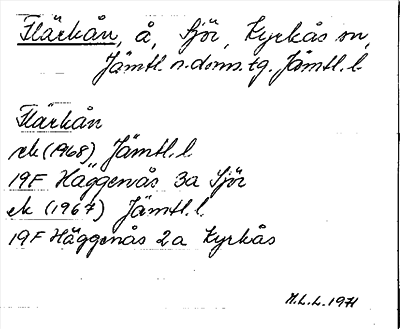 Fläckån, å, Sjör, Kyrkås sn,
Jämtl. n. doms. tg. Jämtl. l.
Fläckån
ek (1968) Jämtl. l.
19F Häggenås 3a Sjör
ek (1967) Jämtl. l.
19F Häggenås 2a Kyrkås
M.L.L. 1971